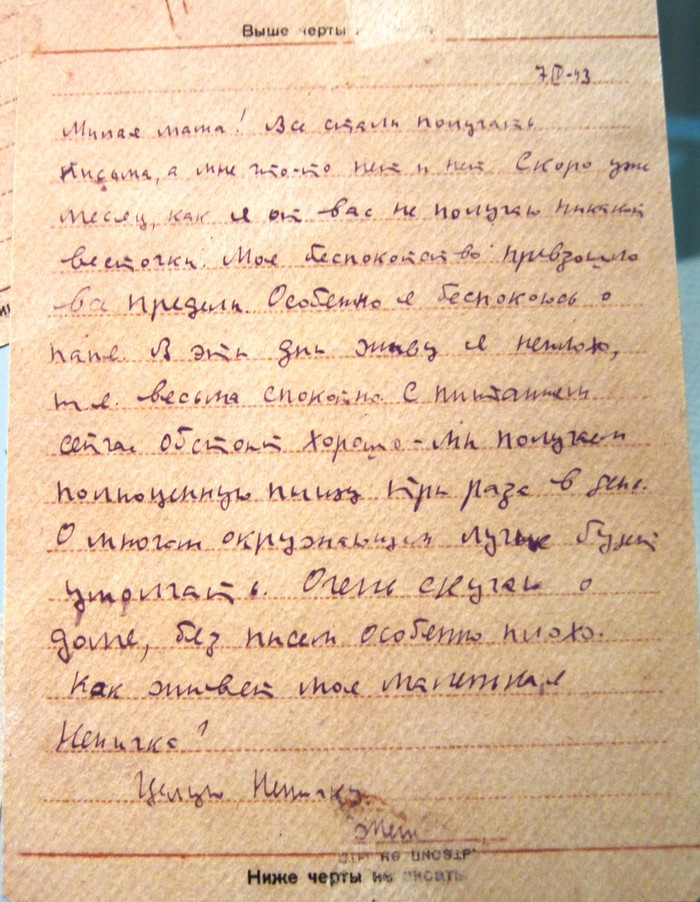 Выше черты
7 IV-43
Милая мама! Все стали получать
письма, а мне что-то нет и нет. Скоро уже
месяц, как я от вас не получаю никакой
весточки. Мое беспокойство превзошло
все пределы. Особенно я беспокоюсь о
папе. В эти дни живу я неплохо,
т.е. весьма спокойно. С питанием
сейчас обстоит хорошо - мы получаем
полноценную пищу три раза в день.
О многом окружающем лучше будет
умолчать. Очень скучаю о
доме, без писем особенно плохо.
Как живет моя маленькая
Неличка?
Целую Неличку.
Ниже черты не писать